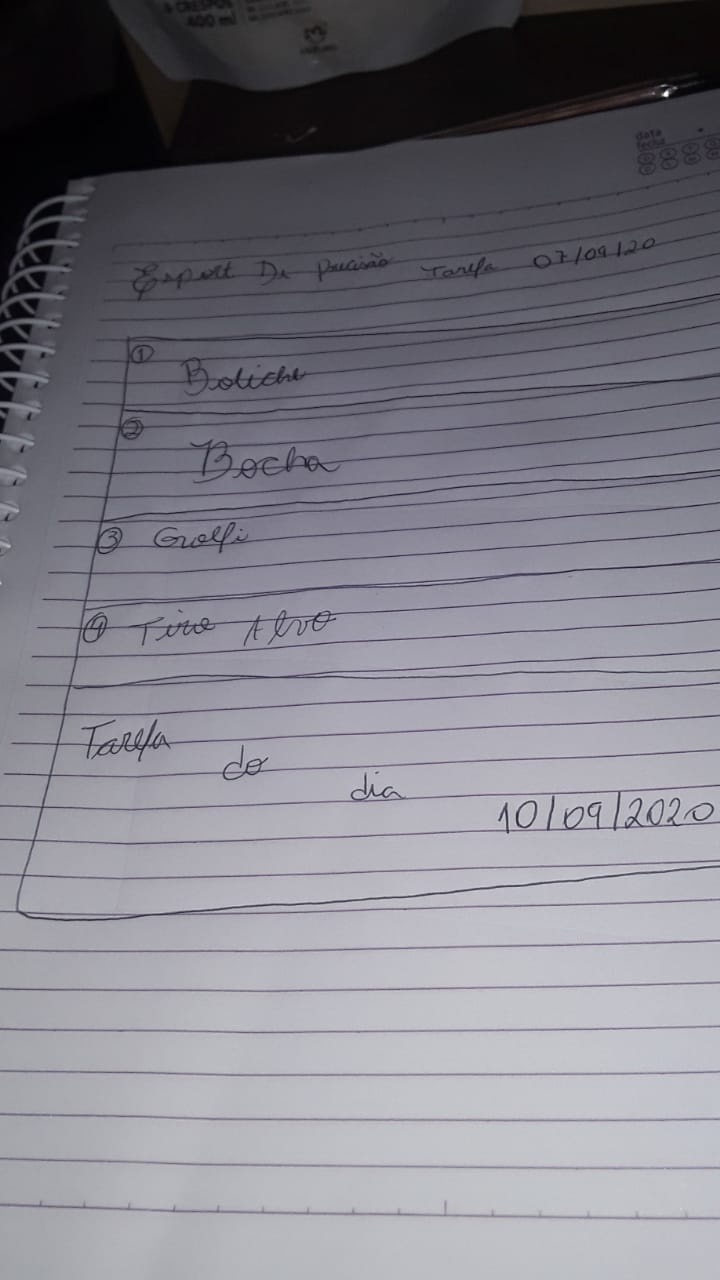 & CRESPOS
400 ml
data
fecha
Esport De precisão Tarefa 07/09/20
① Boliche
② Bocha
③ Golfi
④ Tiro Alvo
Tarefa do dia 10/09/2020